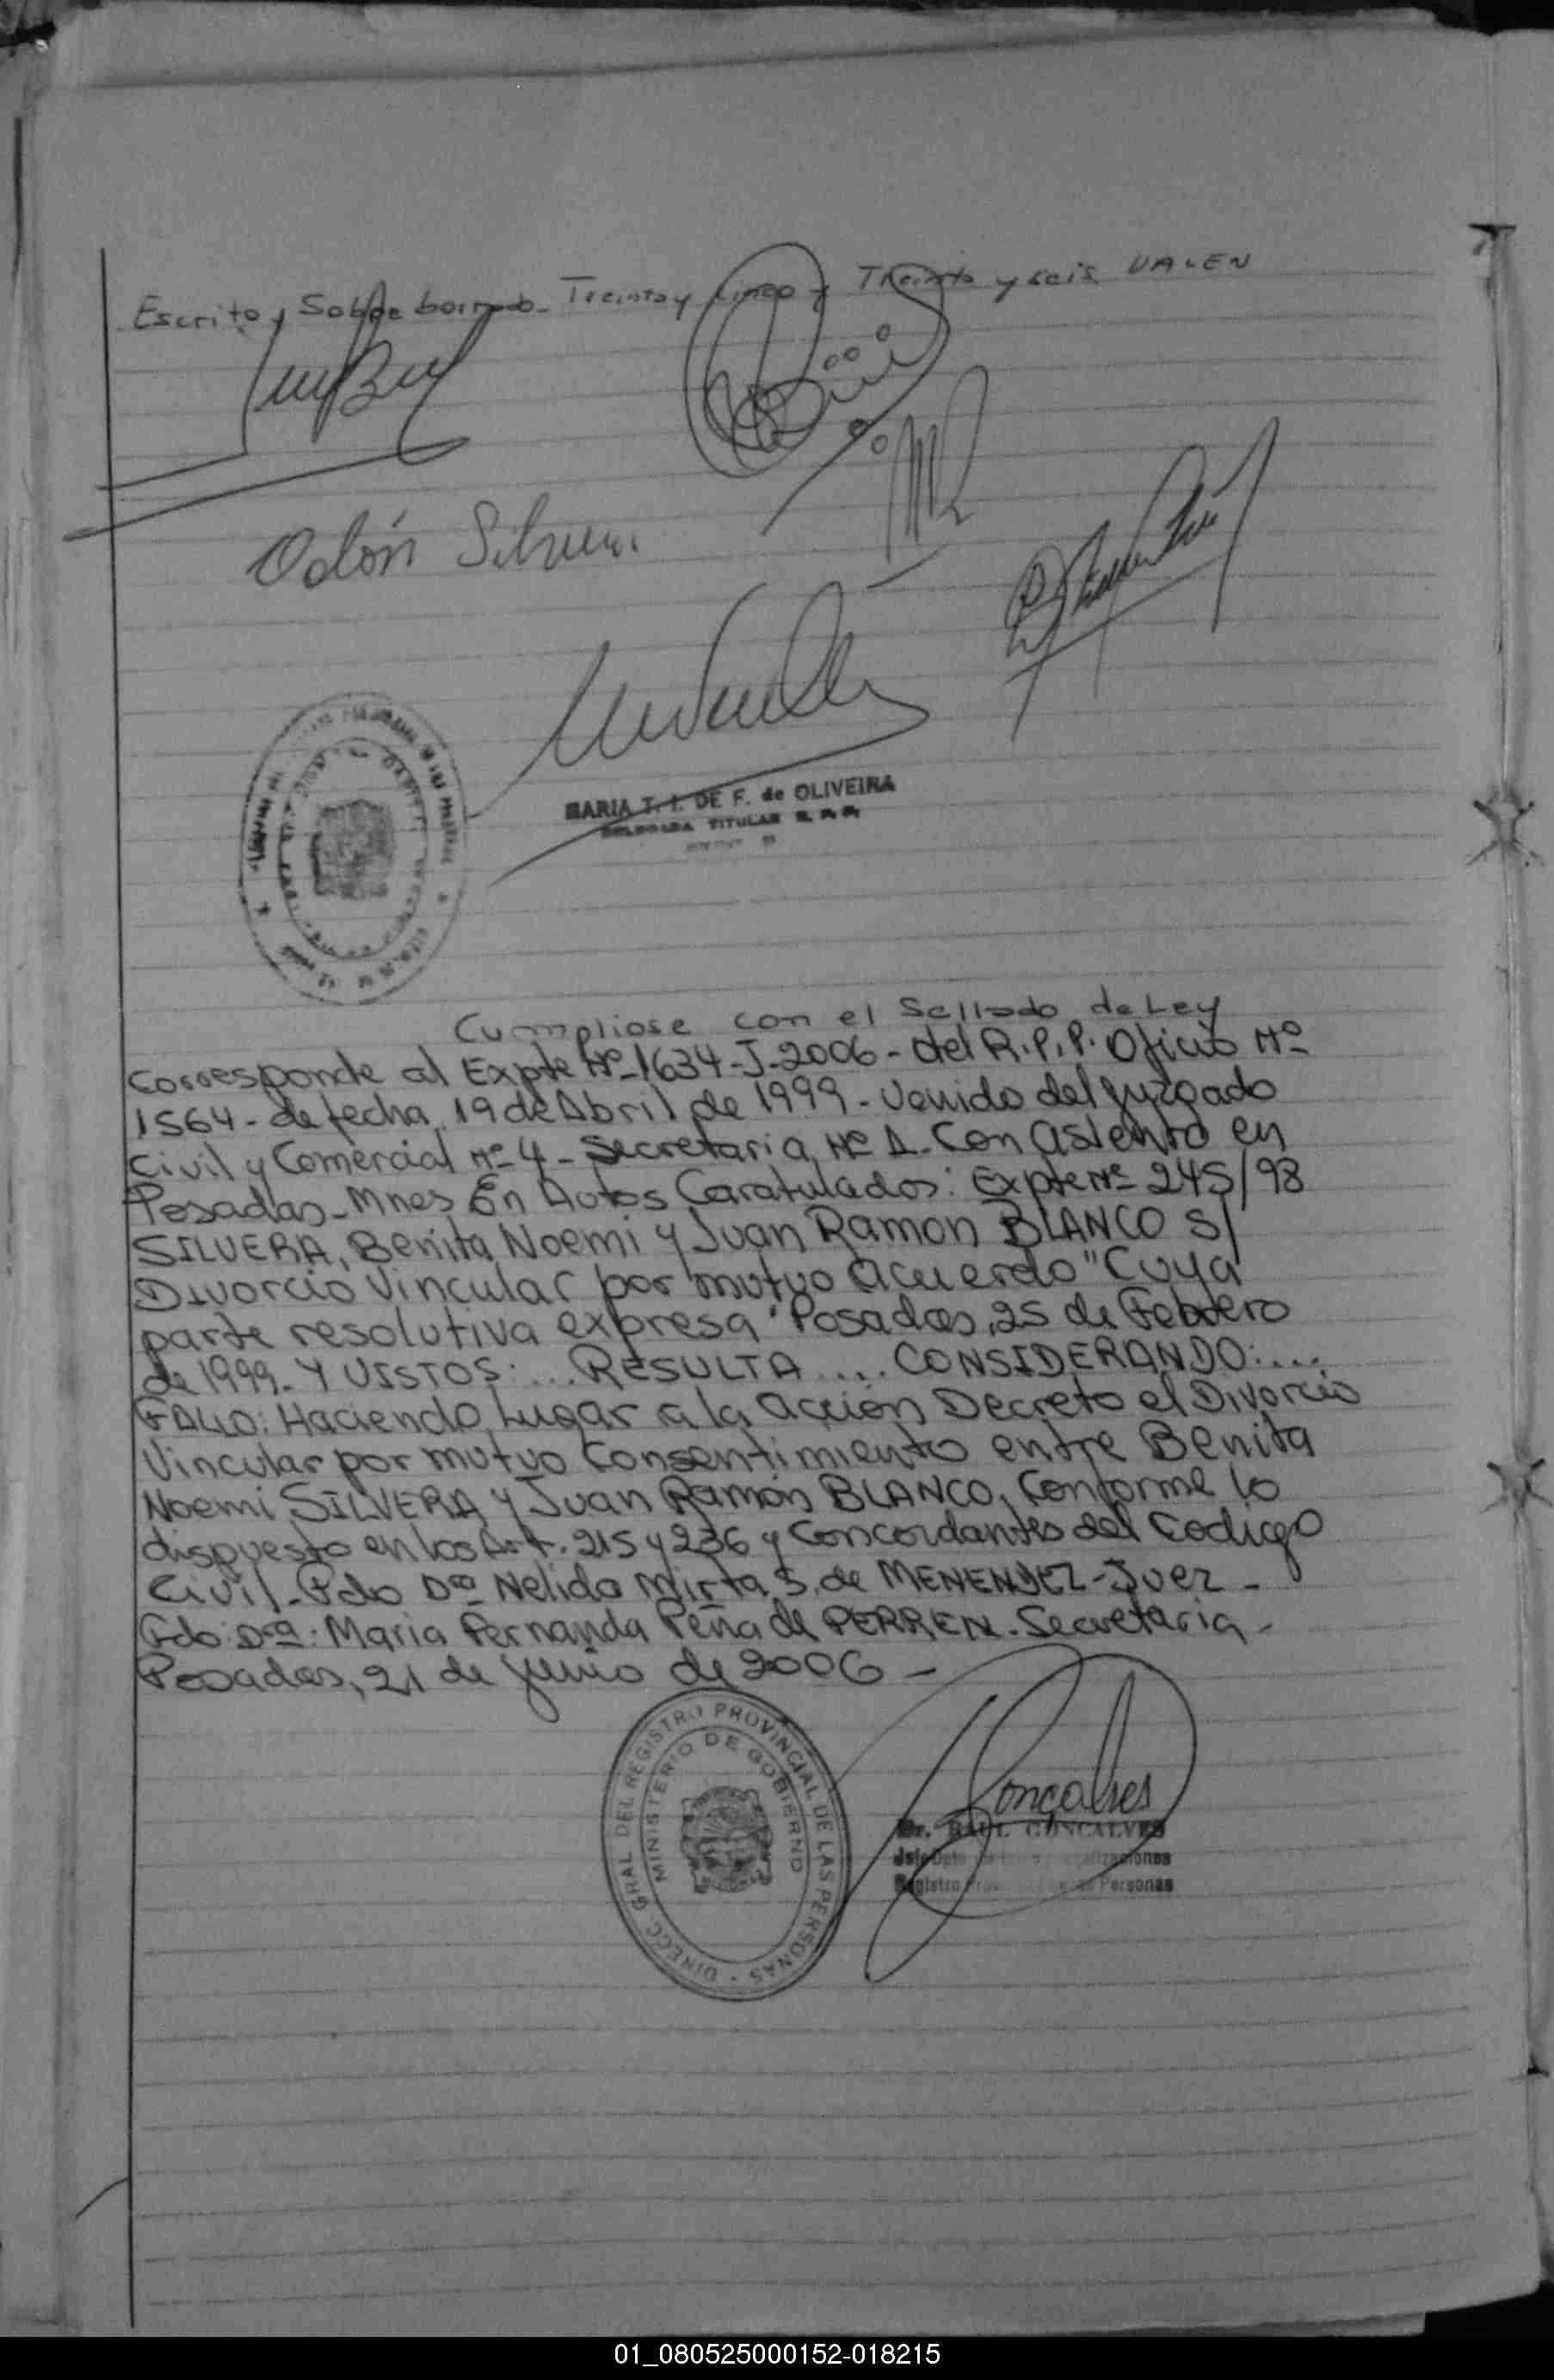 Escrito y Sobre borrado - Treinta y cinco y Treinta y seis VALEN
Odón Silvera
MARIA T. I. DE F. de OLIVEIRA
DELEGADA TITULAR R. P. P.
Cumpliose con el Sellado de Ley
Corresponde al Expte Nº-1634-J-2006- del R.P.P. Oficio Nº
1564- de fecha 19 de Abril de 1999- Venido del Juzgado
Civil y Comercial Nº-4- Secretaria Nº 1- Con asiento en
Posadas- Mnes En Autos Caratulados: Expte Nº 245/98
SILVERA, Benita Noemi y Juan Ramon BLANCO S/
Divorcio Vincular por mutuo acuerdo" Cuya
parte resolutiva expresa "Posadas, 25 de Febrero
de 1999- Y VISTOS: ... RESULTA .... CONSIDERANDO: ....
FALLO: Haciendo Lugar a la acción Decreto el Divorcio
Vincular por mutuo Consentimiento entre Benita
Noemi SILVERA y Juan Ramón BLANCO, Conforme lo
dispuesto en los Art. 215 y 236 y Concordantes del Codigo
Civil- Fdo Dra Nelida Mirta S. de MENENDEZ-Juez-
Fdo: Dra: Maria Fernanda Peña de PERREN. Secretaria-
Posadas, 21 de Junio de 2006-
DIRECC. GRAL DEL REGISTRO PROVINCIAL DE LAS PERSONAS
MINISTERIO DE GOBIERNO
Goncalves
Dr. RAUL GONCALVES
Jefe Dpto
Registro Personas
01_080525000152-018215